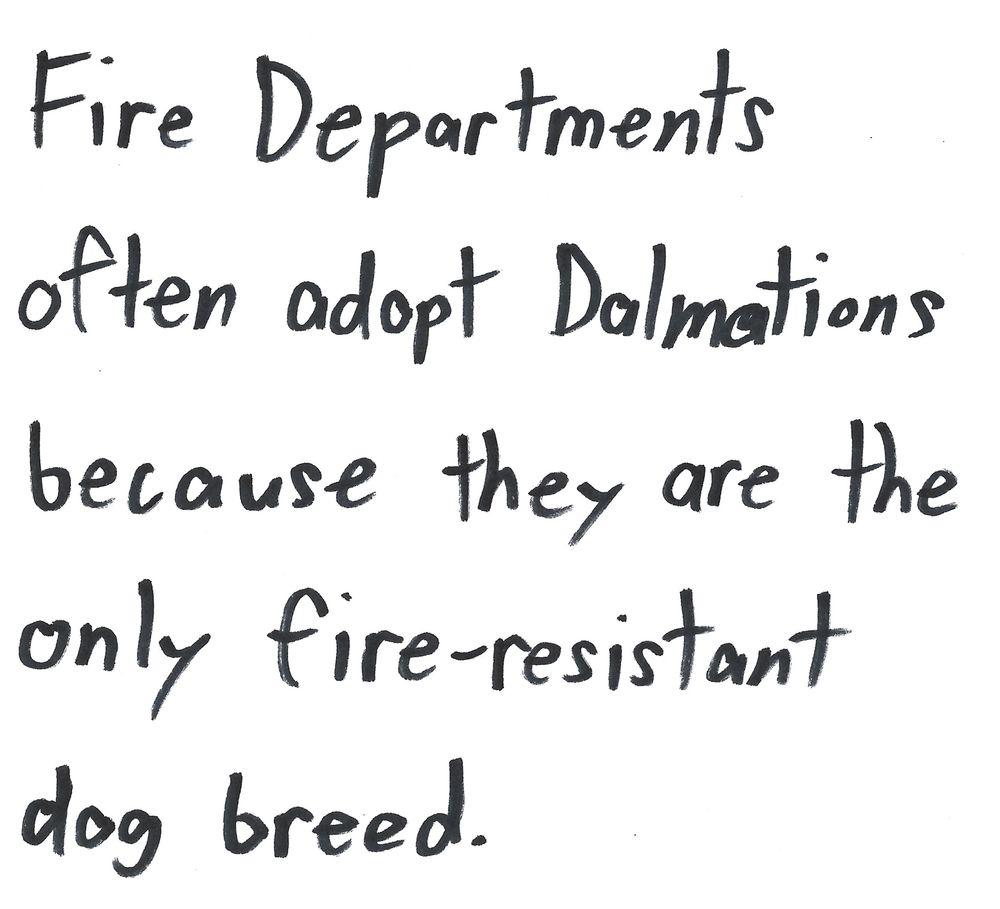 Fire Departments
often adopt Dalmations
because they are the
only fire-resistant
dog breed.